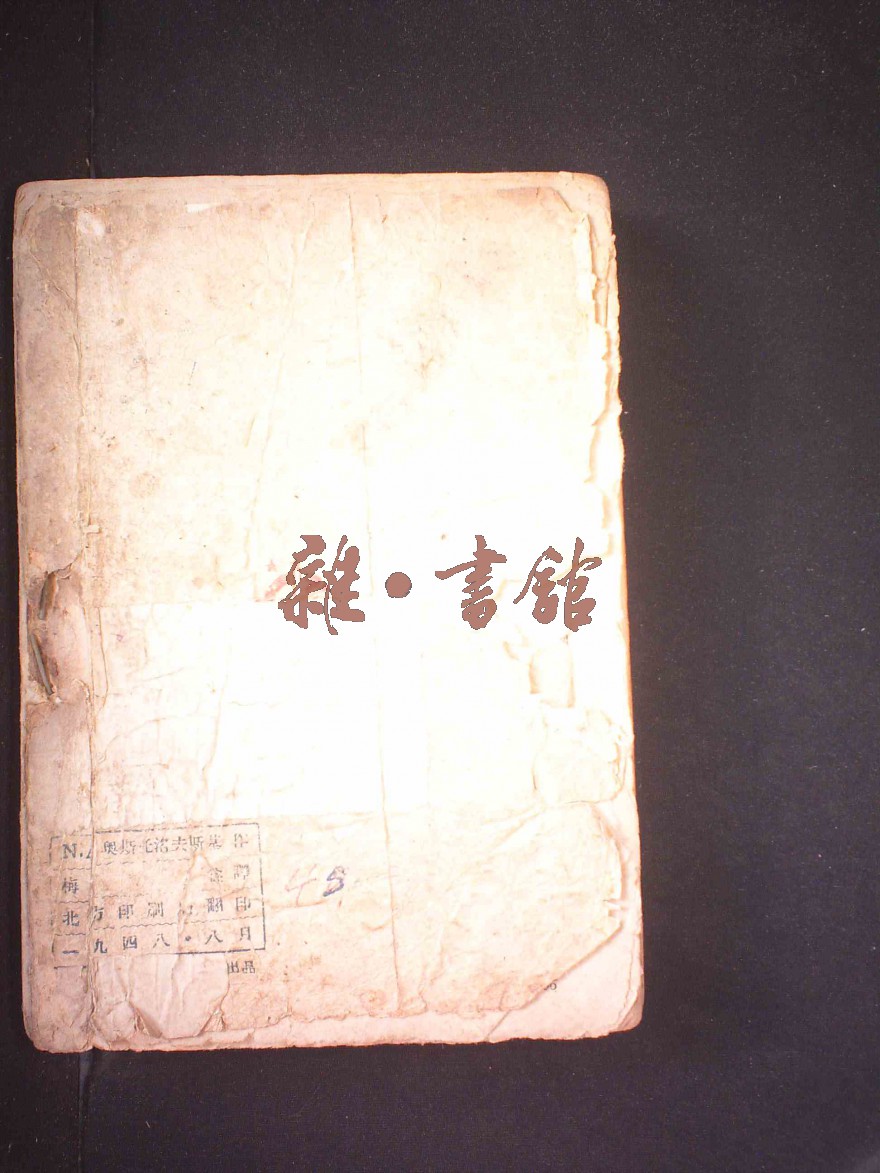 雜·書館
N.A.奥斯托洛夫斯基 作
梅 益 譯
北方印刷 翻印
一九四八·八月
出品
48